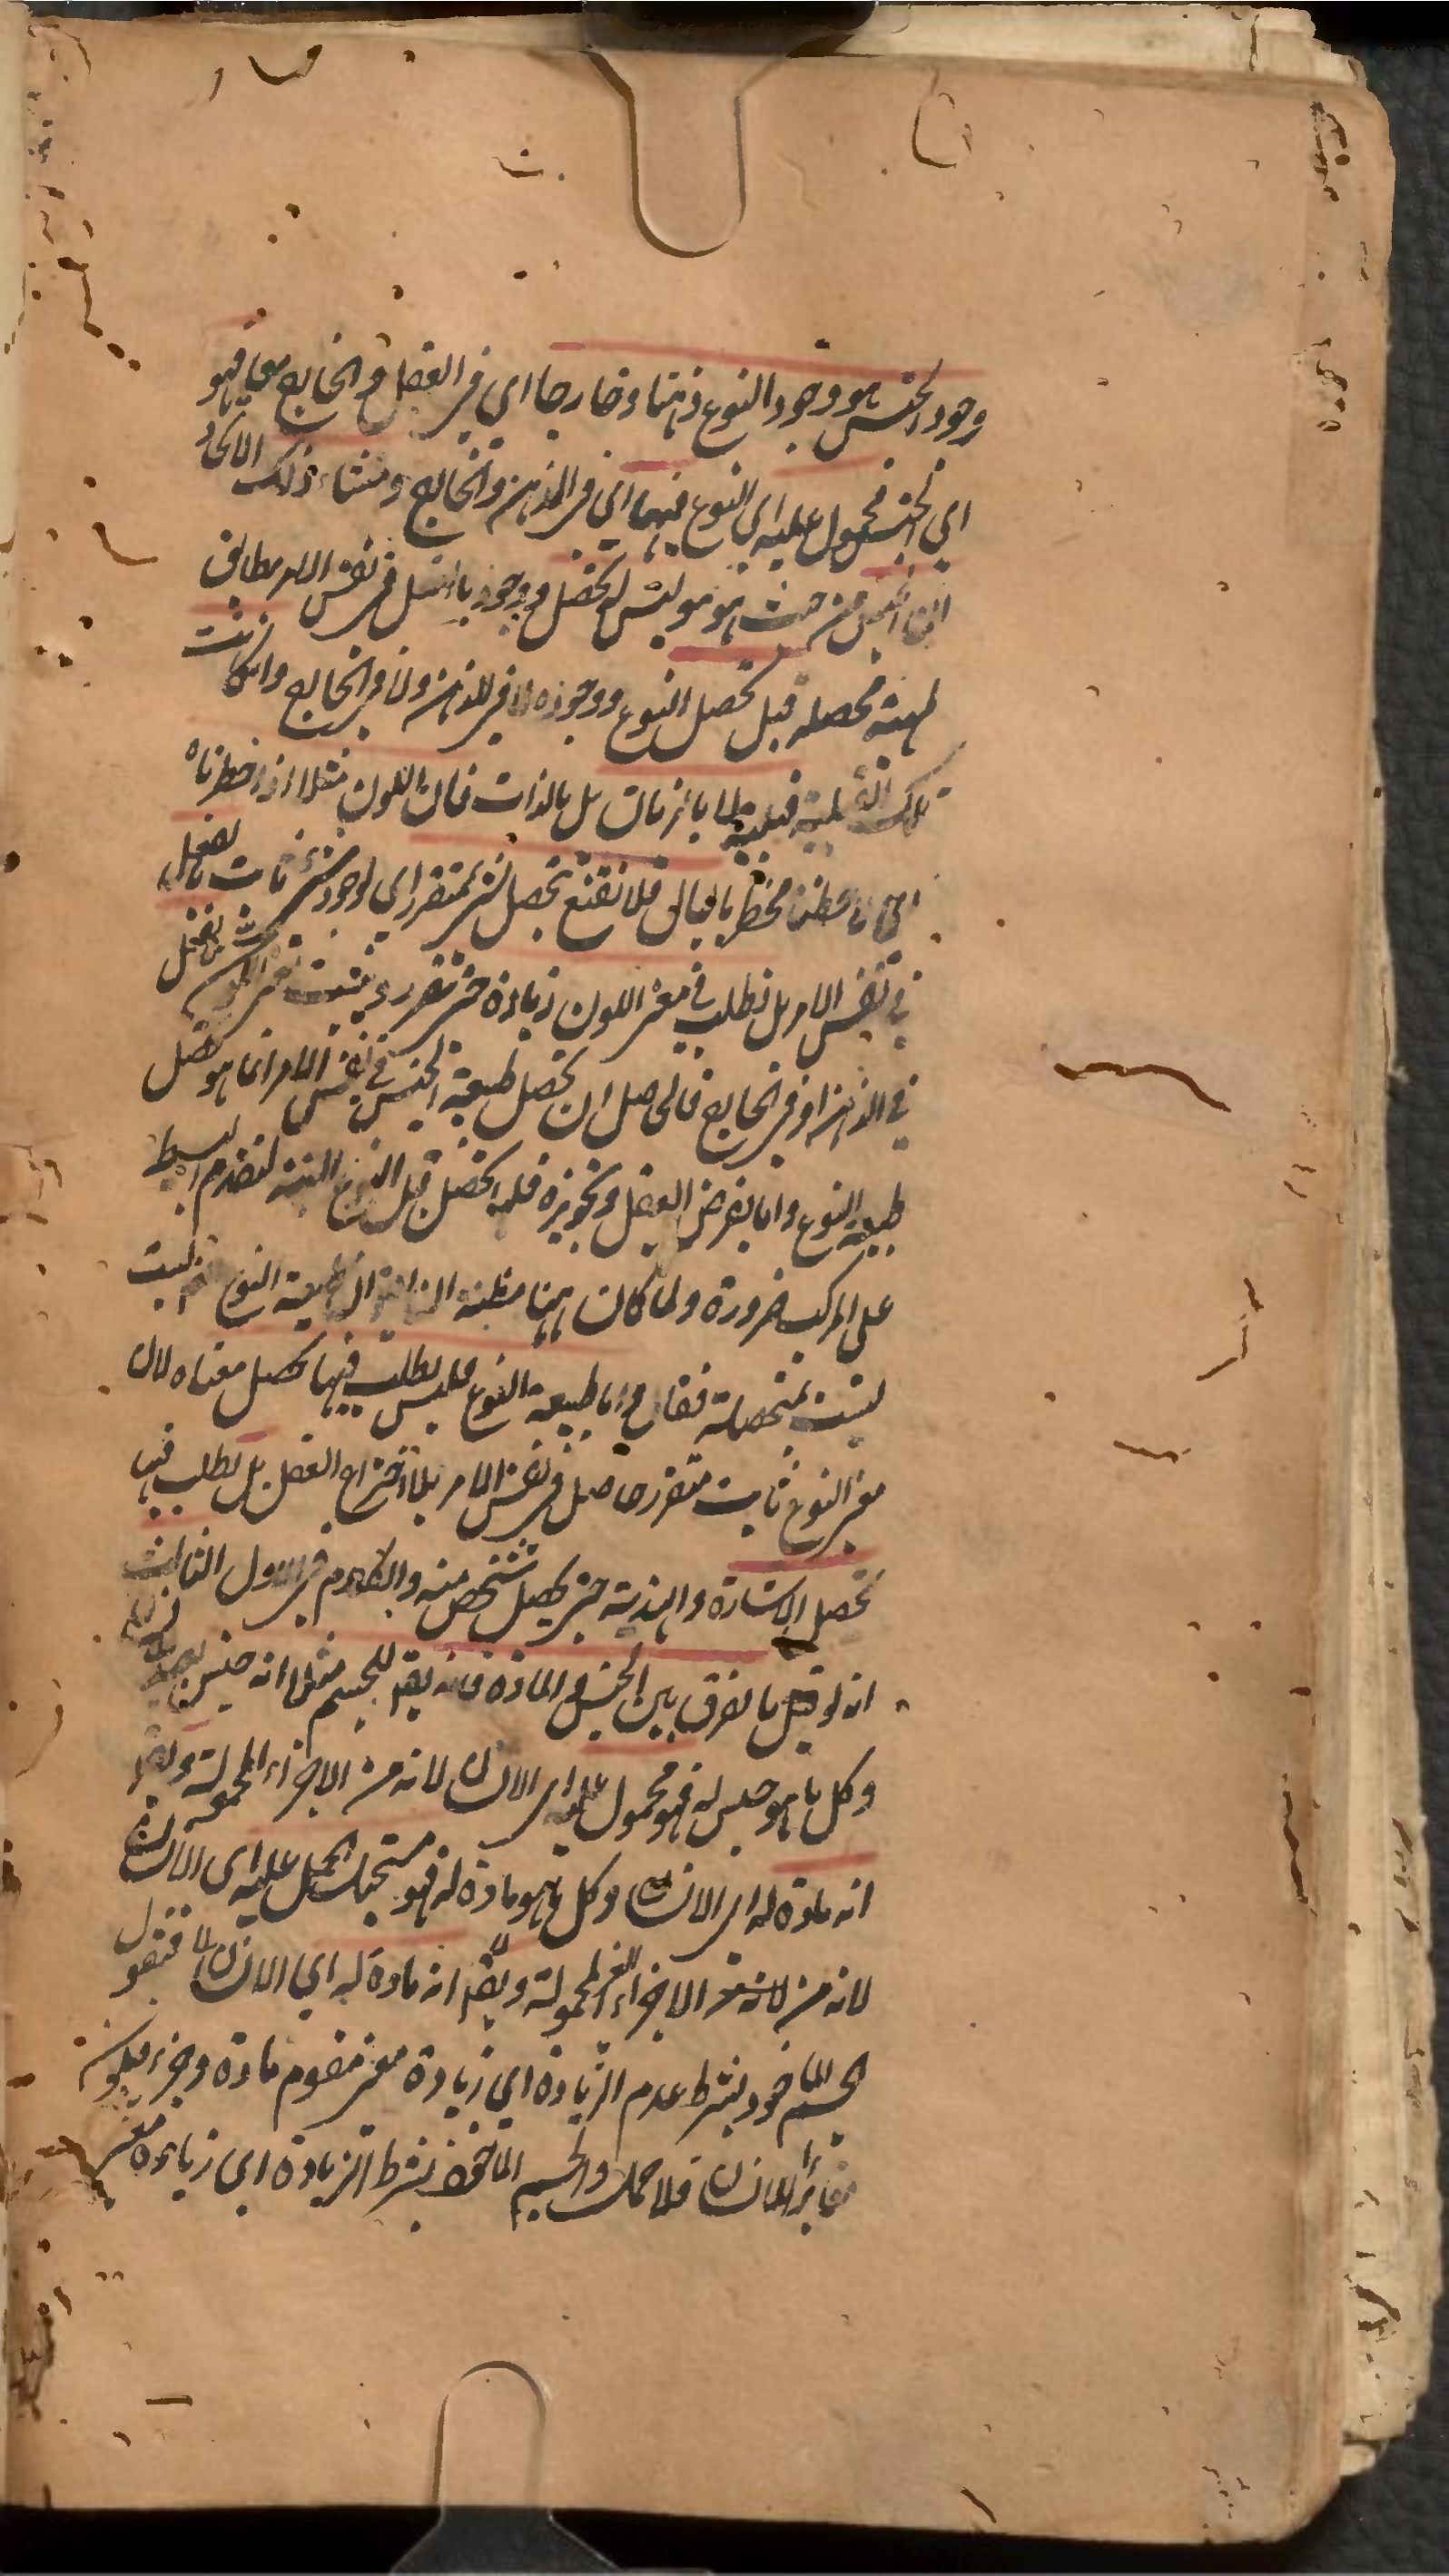 وجود الجنس هو وجود النوع ذهنا وخارجا اى فى العقل والخارج معا فهو
اى الجنس محمول عليه اى النوع فيهما اى فى الذهن والخارج ومنشاء ذلك الاتحاد
ان الجنس من حيث هو هو ليس له تحصل ووجود بالفعل فى نفس الامر مطابق
لمهية محصلة قبل تحصل النوع ووجوده لا فى الذهن ولا فى الخارج وان كانت
تلك القبلية قبلية لا بالزمان بل بالذات فان اللون مثلا اذا خطرناه
بالبال فلا نقنع بتحصل شئ متقرر اى لوجود شئ ثابت بالفعل
فى نفس الامر بل نطلب فى معنى اللون زيادة حتى تتقرر ويثبت بالفعل
فى الذهن او فى الخارج فالحاصل ان تحصل طبيعة الجنس فى نفس الامر انما هو تحصل
طبيعة النوع واما بفرض العقل وتجويزه فله تحصل قبل النوع البتة لتقدم البسيط
على المركب ضرورة ولما كان ههنا مظنة ان طبيعة النوع ليست
ليست بمتحصلة فقال واما طبيعة النوع فليس يطلب فيها تحصل معناه لان
معنى النوع ثابت متقرر حاصل فى نفس الامر بلا اختراع العقل بل يطلب فيها
تحصل الاشارة والهذية حتى يحصل شخص منه والكلام فى الاول الثالث
انه لو قيل ما الفرق بين الجنس والمادة فانه يقال للجسم مثلا انه جنس
وكل ما هو جنس له فهو محمول عليه اى الانسان لانه من الاجزاء المحمولة ويقال
انه مادة له اى الانسان وكل ما هو مادة له فهو مستحيل الحمل عليه اى الانسان
لانه من لانه من الاجزاء الغير المحمولة ويقال انه مادة له اى الانسان فنقول
الجسم الماخوذ بشرط عدم الزيادة اى زيادة معنى مقوم مادة وجزء فيكون
مغائرا للانسان فلا حمل والجسم الماخوذ بشرط الزيادة اى زيادة معنى